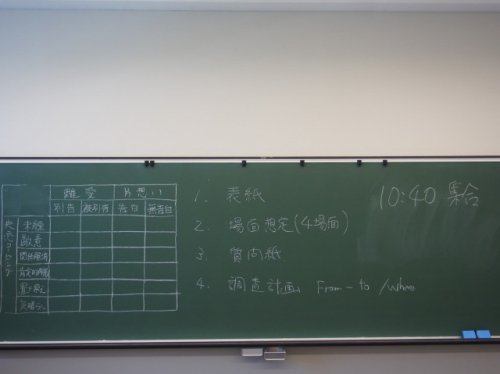 離愛 片想い
別告 被別告 告白 無告白
未練
敵意
1. 表紙
2. 場面想定(4場面)
3. 質問紙
4. 調査計画 From - to / When
10:40 集合